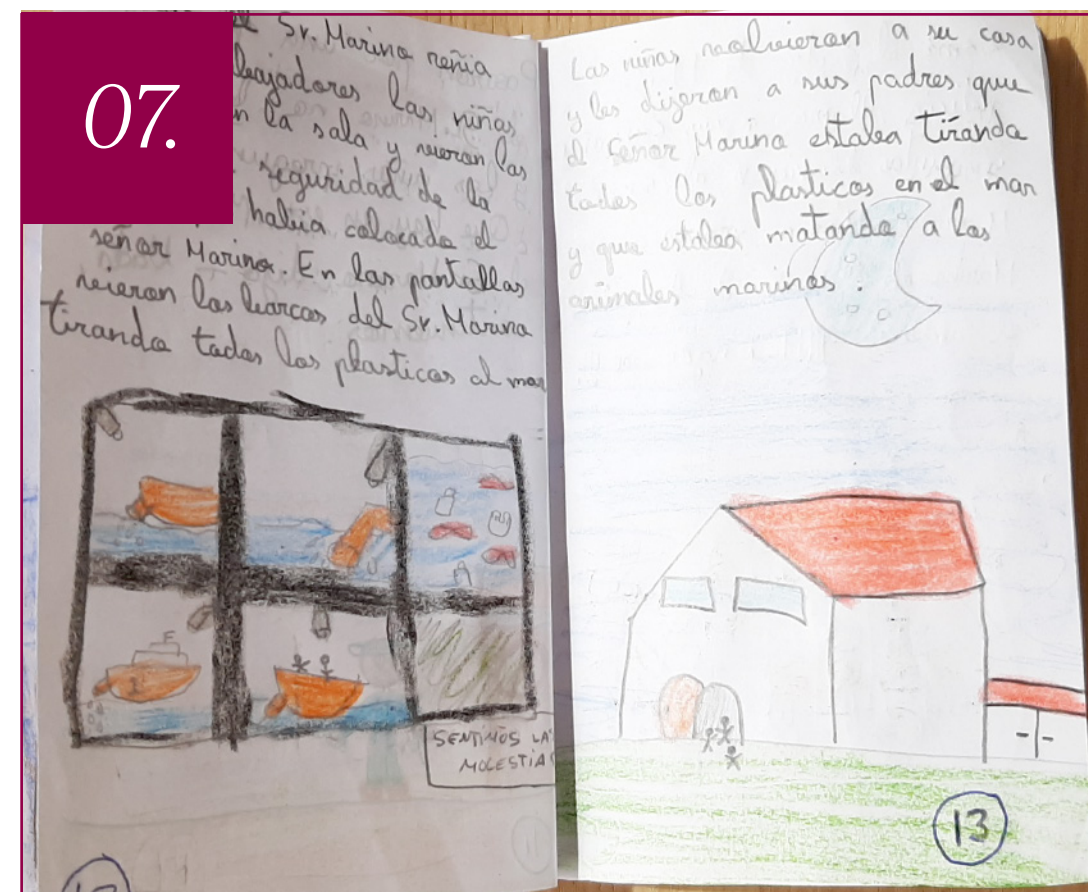 07.
Sr. Marino reñia
bajadores las niñas
n la sala y vieron las
seguridad de la
habia colocado el
señor Marino. En las pantallas
vieron los barcos del Sr. Marino
tirando todos los plasticos al mar
SENTIMOS LA
MOLESTIA
Las niñas volvieron a su casa
y les dijeron a sus padres que
el Señor Marino estaba tirando
todos los plasticos en el mar
y que estaba matando a los
animales marinos.
13